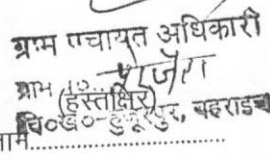 ग्राम पंचायत अधिकारी
ग्राम
(हस्ताक्षर)
वि०ख०-हुजूरपुर, बहराइच
नाम......................